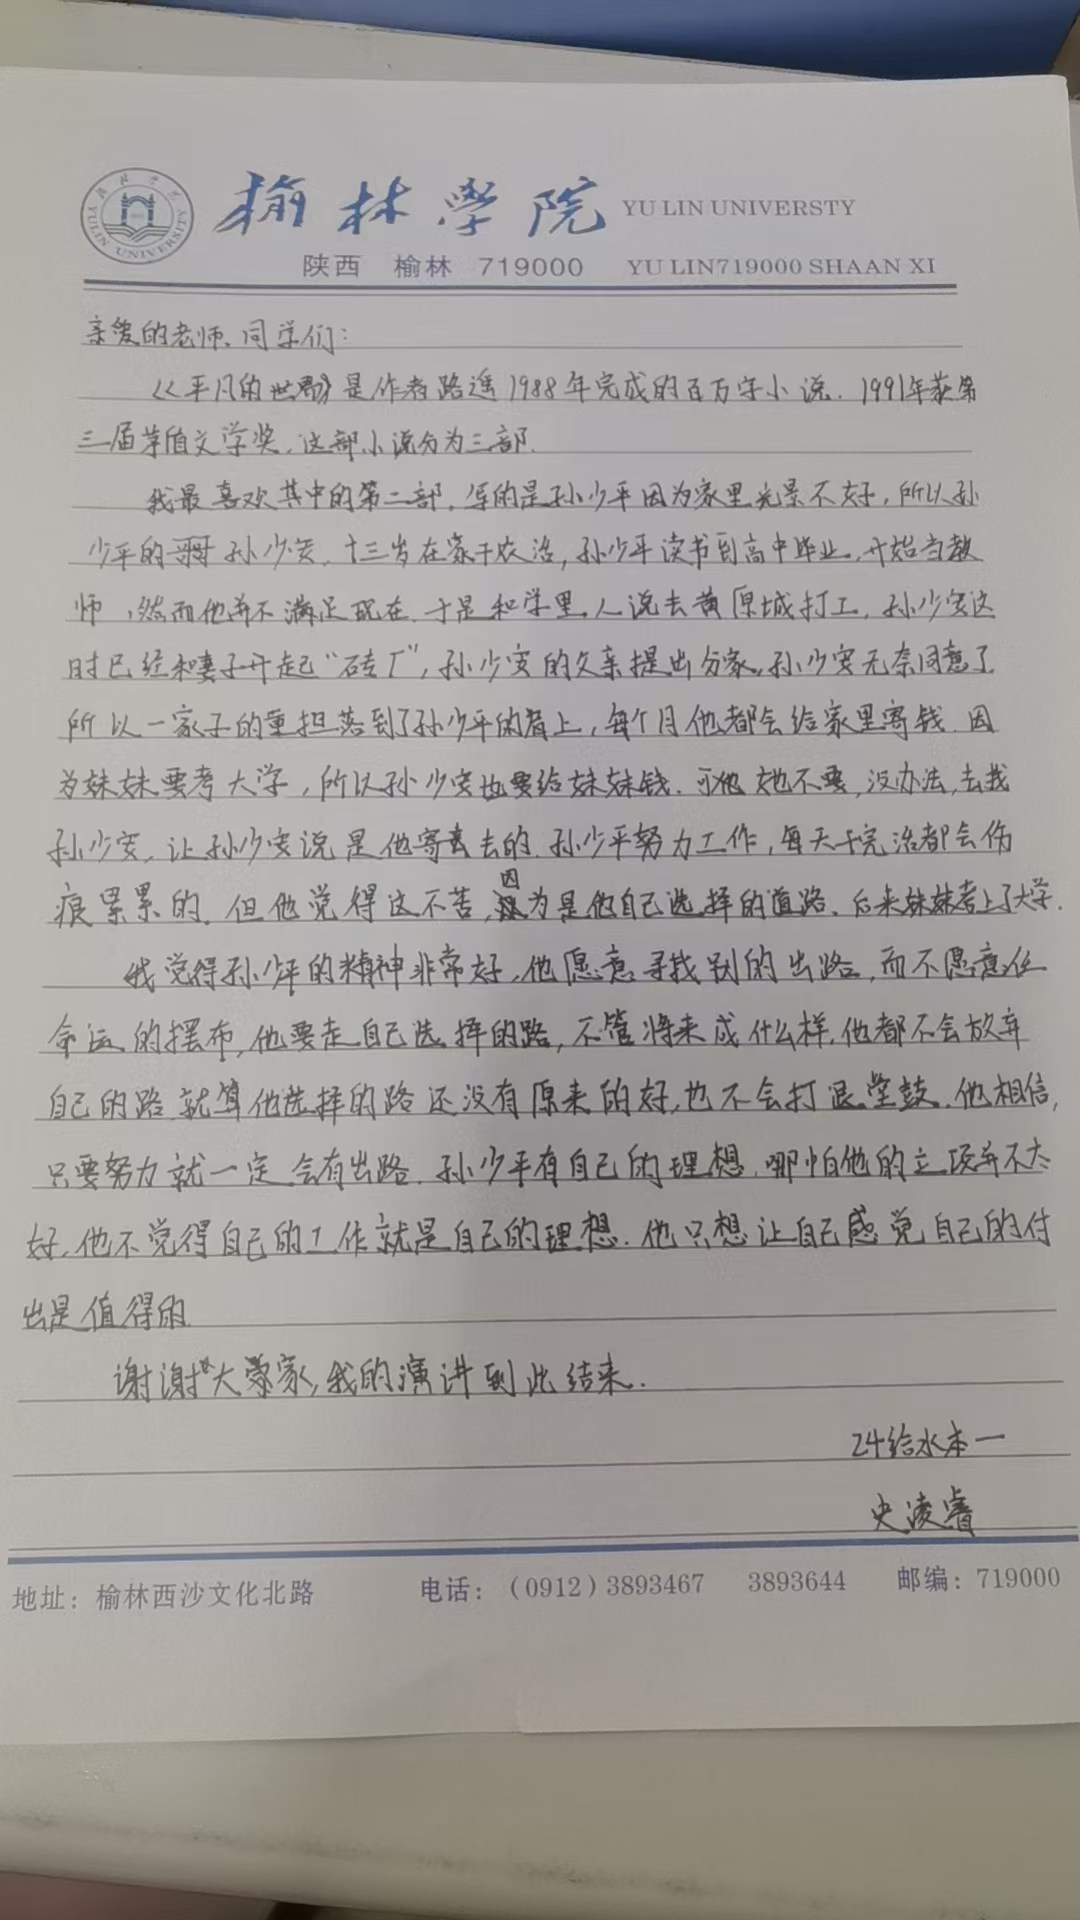 榆林學院 YU LIN UNIVERSTY
YULIN UNIVERSITY
陕西 榆林 719000 YU LIN719000 SHAAN XI
亲爱的老师、同学们：
《平凡的世界》是作者路遥1988年完成的百万字小说.1991年获第
三届茅盾文学奖,这部小说分为三部.
我最喜欢其中的第二部.写的是孙少平因为家里光景不好,所以孙
少平的哥哥孙少安,十三岁在家干农活,孙少平读书到高中毕业,开始当教
师,然而他并不满足现在.于是和学里人说去黄原城打工,孙少安这
时已经和妻子开起“砖厂”,孙少安的父亲提出分家,孙少安无奈同意了
所以一家子的重担落到了孙少平的肩上,每个月他都会给家里寄钱.因
为妹妹要考大学,所以孙少安也要给妹妹钱.可她不要,没办法,去找
孙少安,让孙少安说是他寄去的.孙少平努力工作,每天干完活都会伤
痕累累的.但他觉得这不苦,因为是他自己选择的道路.后来妹妹考上了大学.
我觉得孙少平的精神非常好,他愿意寻找别的出路,而不愿意任
命运的摆布,他要走自己选择的路,不管将来成什么样,他都不会放弃
自己的路就算他选择的路还没有原来的好,也不会打退堂鼓.他相信,
只要努力就一定会有出路.孙少平有自己的理想.哪怕他的立项并不太
好,他不觉得自己的工作就是自己的理想.他只想让自己感觉自己的付
出是值得的.
谢谢大家,我的演讲到此结束.
24给水本一
史凌睿
地址：榆林西沙文化北路 电话：(0912)3893467 3893644 邮编：719000